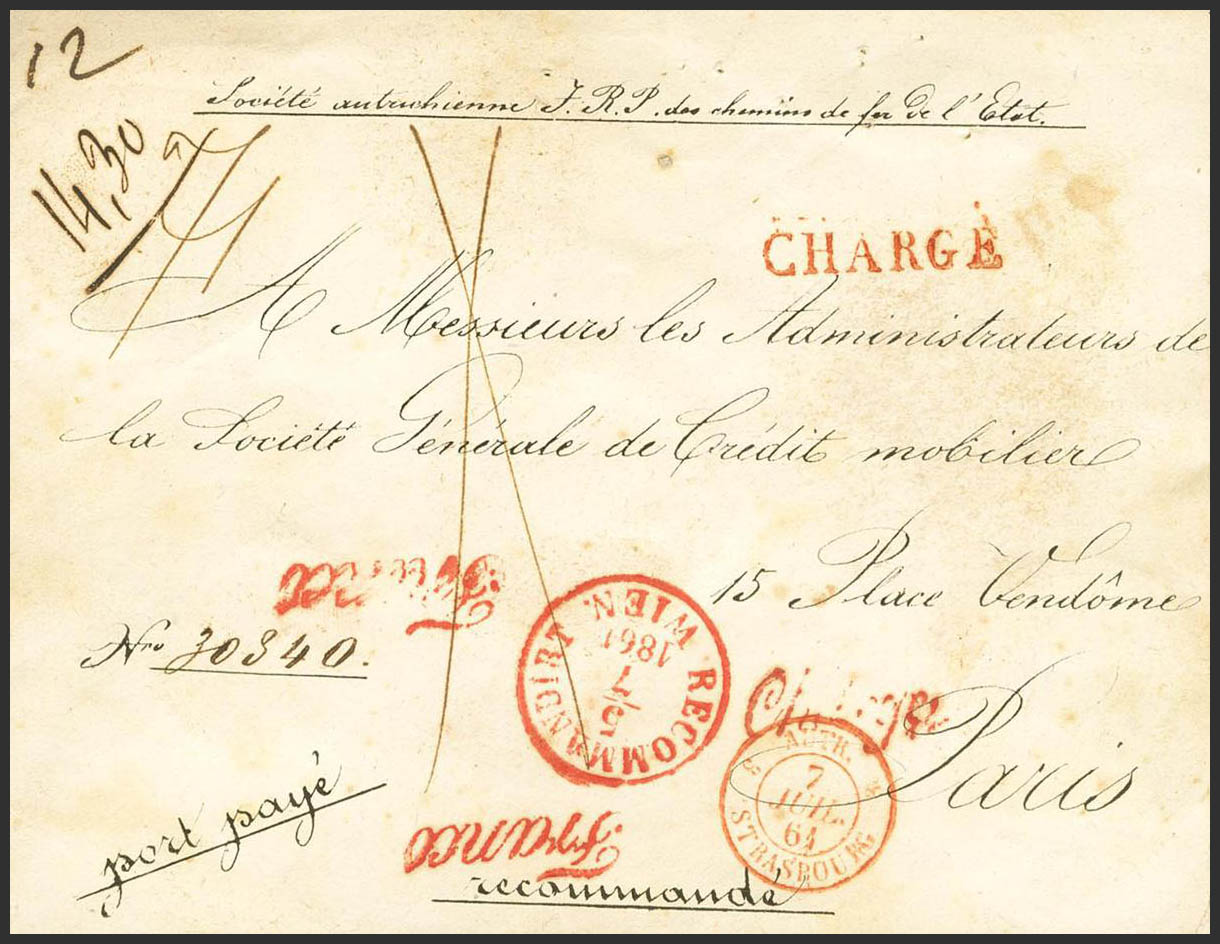 12
Société autrichienne J. R. P. des chemins de fer de l'Etat.
14,30
CHARGÉ
A Messieurs les Administrateurs de
la Société Générale de Crédit mobilier
15 Place Vendôme
Franco
Nro 30340.
RECOMMANDIRT WIEN.
1861
7/5
Chargé
Paris
AUTR.
7
JUIL.
61
STRASBOURG
port payé
Franco
recommandé